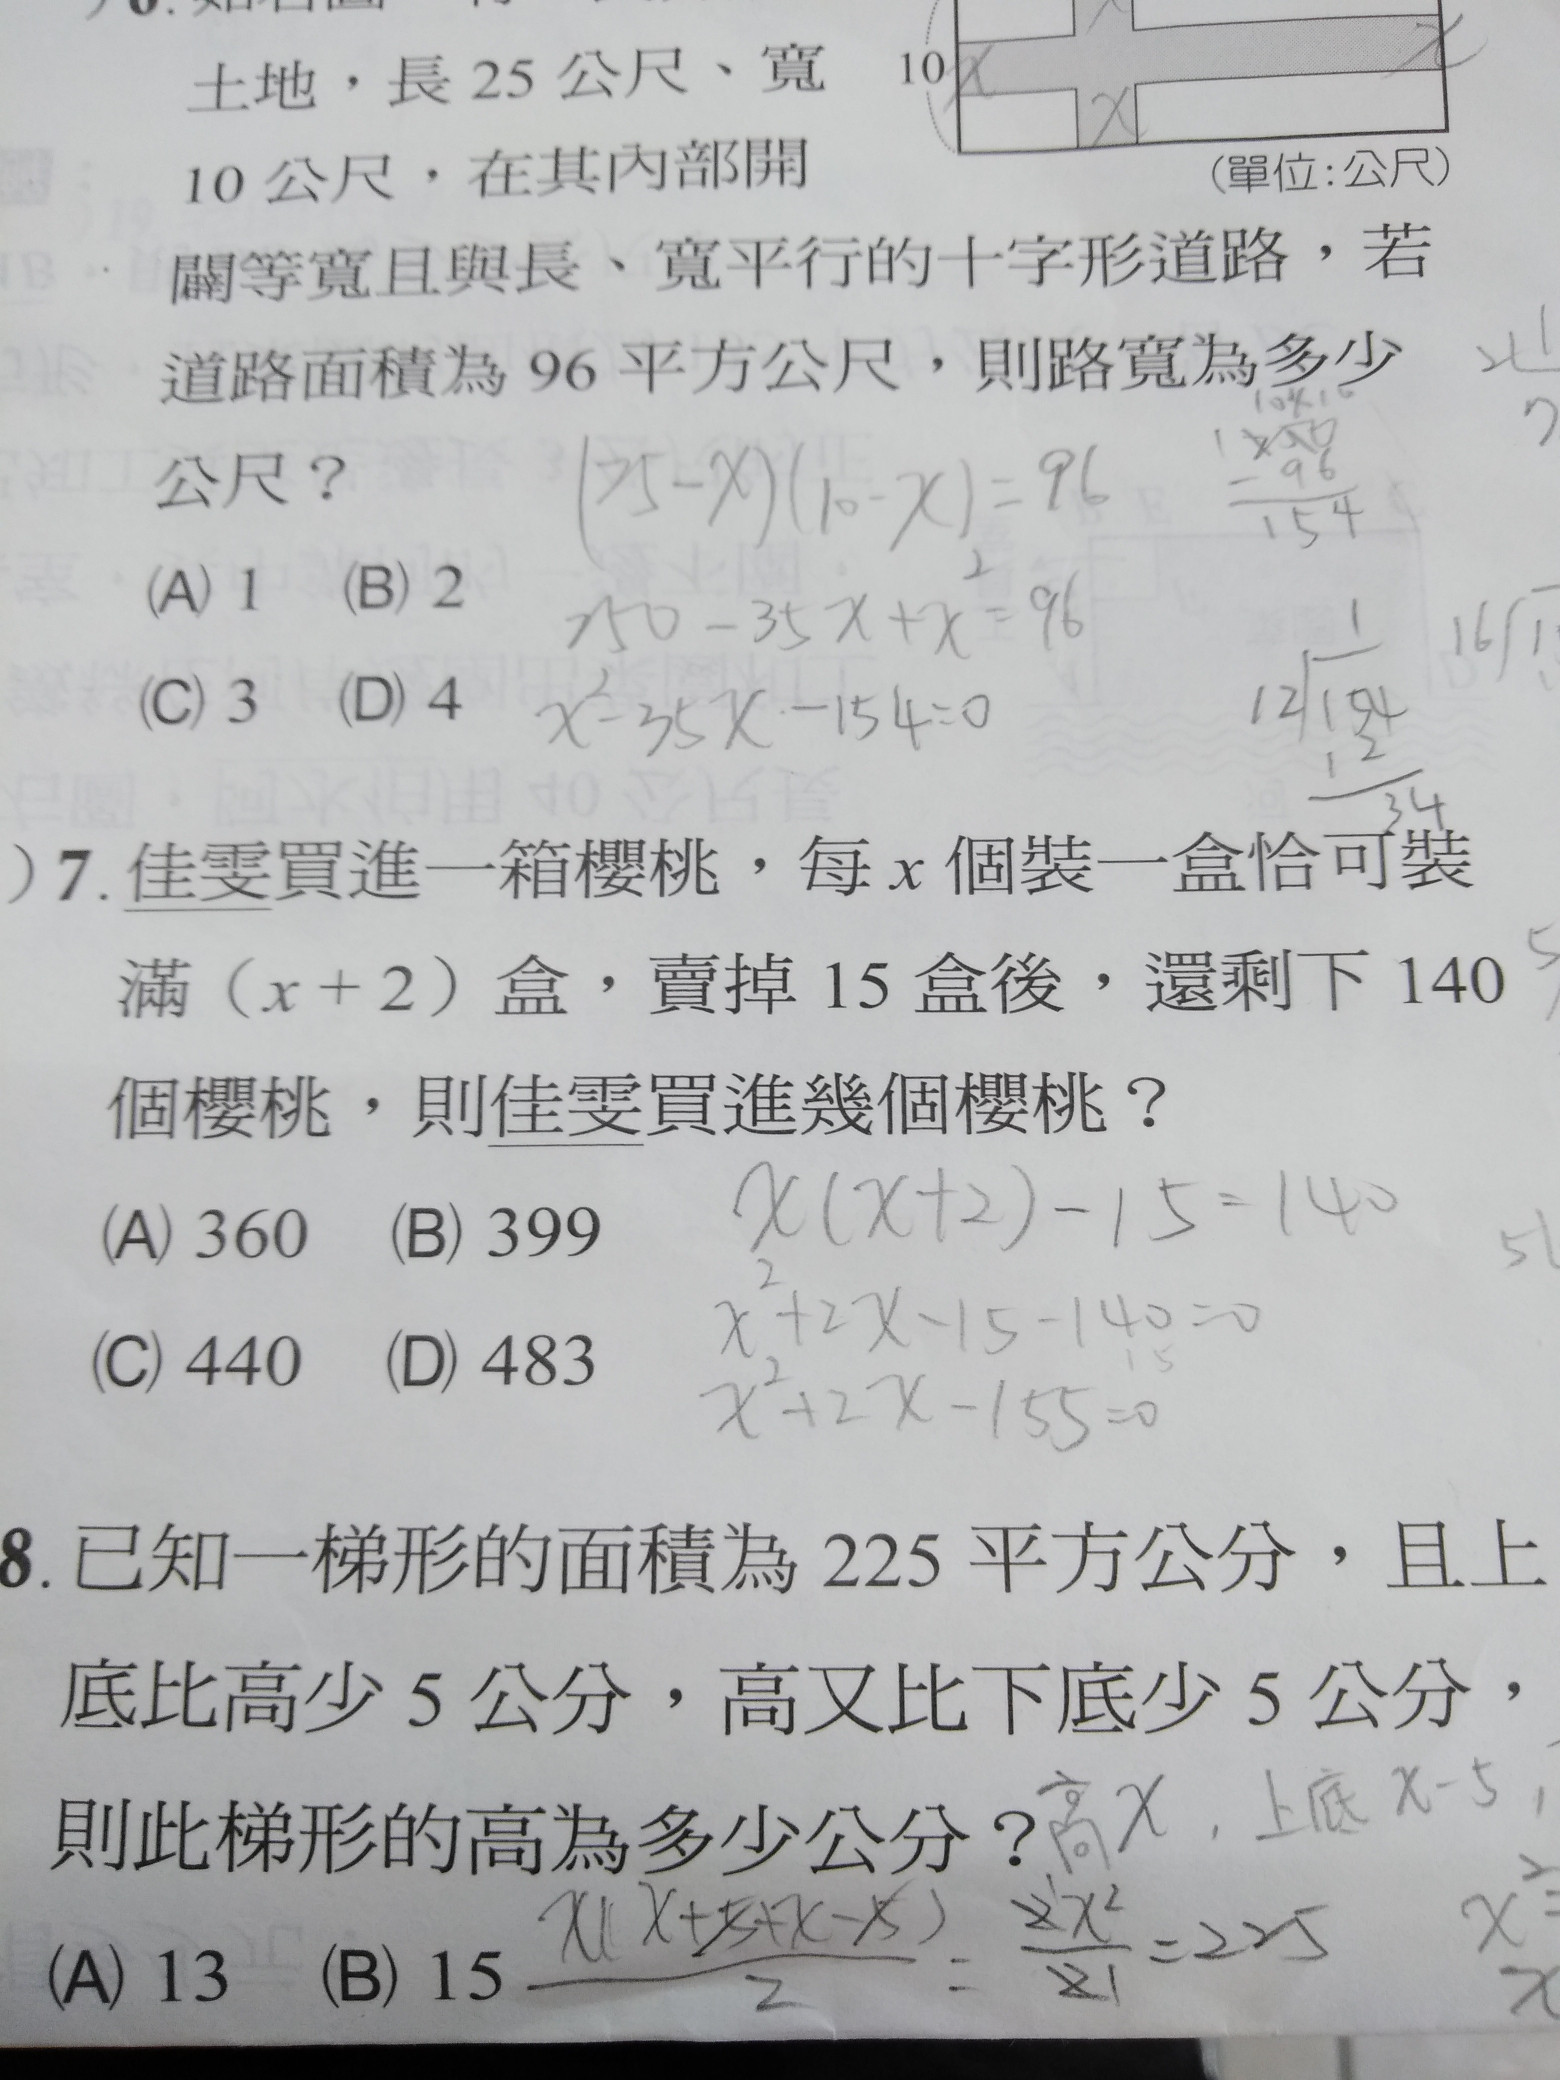 土地，長 25 公尺、寬
10
x
x
x
x
10 公尺，在其內部開
(單位:公尺)
闢等寬且與長、寬平行的十字形道路，若
道路面積為 96 平方公尺，則路寬為多少
公尺？
(25-x)(10-x)=96
-96
154
(A) 1 (B) 2
250-35x+x²=96
(C) 3 (D) 4
x²-35x-154=0
1
12)154
12
34
7. 佳雯買進一箱櫻桃，每 x 個裝一盒恰可裝
滿（x＋2）盒，賣掉 15 盒後，還剩下 140
個櫻桃，則佳雯買進幾個櫻桃？
(A) 360 (B) 399
x(x+2)-15=140
x²+2x-15-140=0
(C) 440 (D) 483
x²+2x-155=0
8. 已知一梯形的面積為 225 平方公分，且上
底比高少 5 公分，高又比下底少 5 公分，
則此梯形的高為多少公分？
高x，上底x-5，
(A) 13 (B) 15
x(x+5+x-5)/2 = 2x²/2 = 225